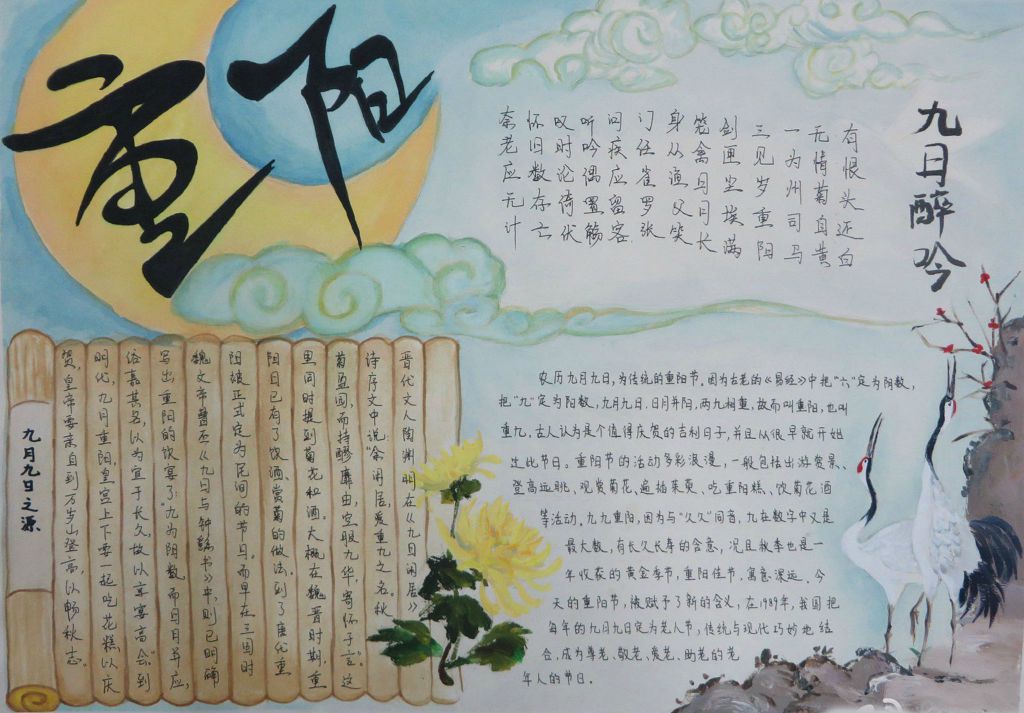 重阳
九日醉吟
有恨头还白
无情菊自黄
一为州司马
三见岁重阳
剑匣尘埃满
笼禽日月长
身从渔父笑
门任雀罗张
问疾应留客
听吟偶置觞
叹时论倚伏
怀旧数存亡
奈老应无计
九月九日之源
晋代文人陶渊明在《九日闲居》
诗序文中说:“余闲居,爱重九之名。秋
菊盈园,而持醪靡由,空服九华,寄怀于言”。这
里同时提到菊花和酒。大概在魏晋时期,重
阳日已有了饮酒、赏菊的做法。到了唐代重
阳被正式定为民间的节日。而早在三国时
魏文帝曹丕《九日与钟繇书》中,则已明确
写出重阳的饮宴了:“九为阳数,而日月并应,
俗嘉其名,以为宜于长久,故以享宴高会。”到
明代,九月重阳,皇宫上下要一起吃花糕以庆
贺,皇帝要亲自到万岁山登高,以畅秋志。
农历九月九日,为传统的重阳节。因为古老的《易经》中把“六”定为阴数,
把“九”定为阳数,九月九日,日月并阳,两九相重,故而叫重阳,也叫
重九。古人认为是个值得庆贺的吉利日子,并且从很早就开始
过此节日。重阳节的活动多彩浪漫,一般包括出游赏景、
登高远眺、观赏菊花、遍插茱萸、吃重阳糕、饮菊花酒
等活动。九九重阳,因为与“久久”同音,九在数字中又是
最大数,有长久长寿的含意,况且秋季也是一
年收获的黄金季节,重阳佳节,寓意深远。今
天的重阳节,被赋予了新的含义,在1989年,我国把
每年的九月九日定为老人节,传统与现代巧妙地结
合,成为尊老、敬老、爱老、助老的老
年人的节日。